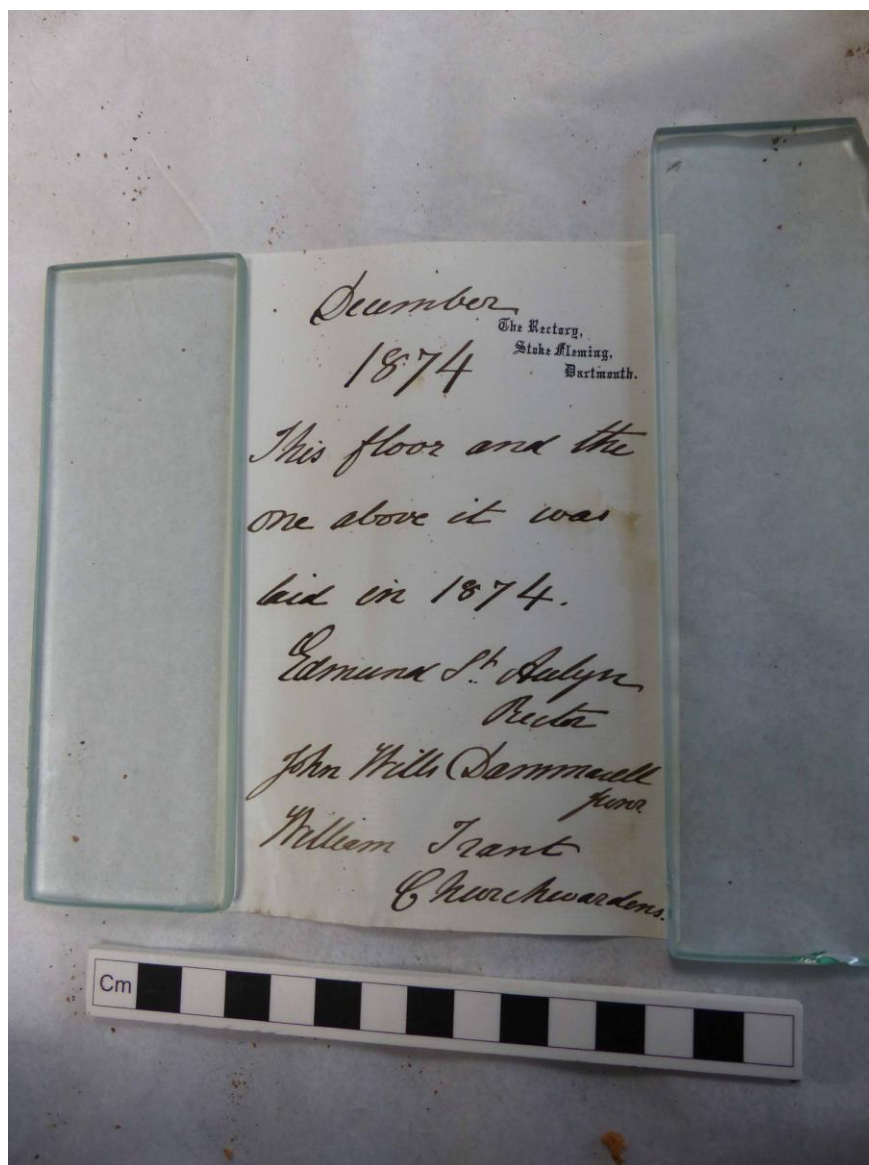 December
The Rectory,
Stoke Fleming,
Dartmouth.
1874
This floor and the
one above it was
laid in 1874.
Edmund St. Aulyn
Rector
John Wills Dammarell
Junr
William Trant
Churchwardens.
Cm